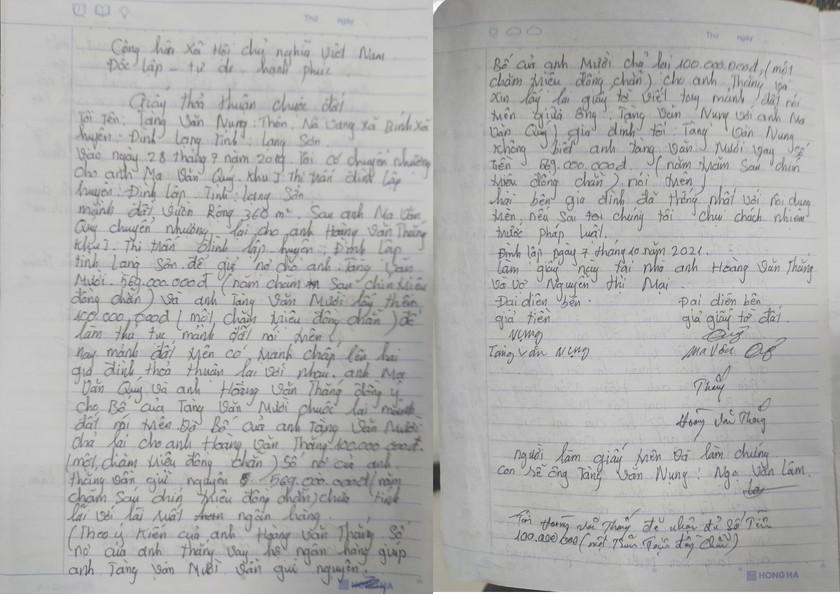 Thứ ngày
Công hòa xã Hội chủ nghĩa Việt Nam
Độc lập - tự do hạnh phúc
Giấy thỏa thuận chuộc đất
Tôi Tên: Tăng Văn Nụng: Thôn: Nà Vang Xã Bính Xá
huyện: Đình Lập Tỉnh: Lạng Sơn
Vào ngày 28 tháng 7 năm 2019 Tôi có chuyển nhượng
cho anh Ma Văn Quý. Khu I. Thị Trấn đình Lập
huyện: Đình Lập Tỉnh: Lạng Sơn
mảnh đất vườn Rộng 360 m². Sau anh Ma Văn
Quý chuyển nhượng lại cho anh Hoàng Văn Thắng
Khu I. Thị trấn Đình lập huyện: Đình Lập
tỉnh Lạng Sơn để giử nợ cho anh Tăng Văn
Mười. 569.000.000đ (năm chăm Sáu chín triệu
đồng chẵn) và anh Tăng Văn Mười lấy thêm
100.000.000đ (một chăm triệu đồng chẵn) để
làm thủ tục mảnh đất nói trên.
nay mảnh đất trên có tranh chấp lên hai
gia đình thỏa thuận lại với nhau. anh Ma
Văn Quý và anh Hoàng Văn Thắng đồng ý
cho Bố của Tăng Văn Mười chuộc lại mảnh
đất nói trên và Bố của anh Tăng Văn Mười
chả lại cho anh Hoàng Văn Thắng 100.000.000đ.
(một chăm triệu đồng chẵn) Số nợ của anh
thắng vẫn giữ nguyên 569.000.000đ (năm
chăm Sáu chín triệu đồng chẵn) chưa tính
lãi với lãi xuất ngân hàng.
(Theo ý kiến của anh Hoàng Văn Thắng Số
nợ của anh thắng vay hộ ngân hàng giúp
anh Tăng Văn Mười vẫn giữ nguyên.
HONG HA
Thứ ngày
Bố của anh Mười chả lại 100.000.000đ, (một
chăm triệu đồng chẵn) cho anh Thắng và
xin lấy lại giấy tờ viết tay mảnh đất nói
trên giữa ông: Tăng Văn Nụng với anh Ma
Văn Quý) gia đình tôi Tăng Văn Nụng
không biết anh Tăng Văn Mười vay Số
tiền 569.000.000đ. (năm trăm Sáu chín
triệu đồng chẵn) nói trên)
hai bên gia đình đã thống nhất với nội dung
trên, nếu Sai tôi chúng tôi chịu chách nhiệm
trước pháp luật.
Đình lập ngày 7 tháng 10 năm 2021.
làm giấy ngay tại nhà anh Hoàng Văn Thắng
và vợ Nguyễn Thị Mai.
Đại diện bên Đại diện bên
giả tiền giả giấy tờ đất
Nụng Quý
Tăng Văn Nụng Ma Văn Quý
Thắng
Hoàng Văn Thắng
người làm giấy trên và làm chứng
con rể ông Tăng Văn Nụng: Ngọ Văn Lâm.
Tôi Hoàng Văn Thắng đã nhận đủ Số Tiền
100.000.000 (một Trăm Triệu đồng Chẵn)
HONG HA